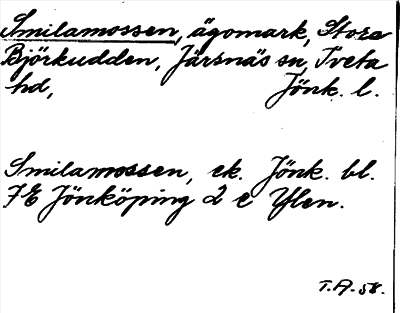 Smilamossen, ägomark, Stora
Björkudden, Järsnäs sn, Tveta
hd, Jönk. l.
Smilamossen, ek. Jönk. bl.
7E Jönköping 2 e Ylen.
T.A.58.